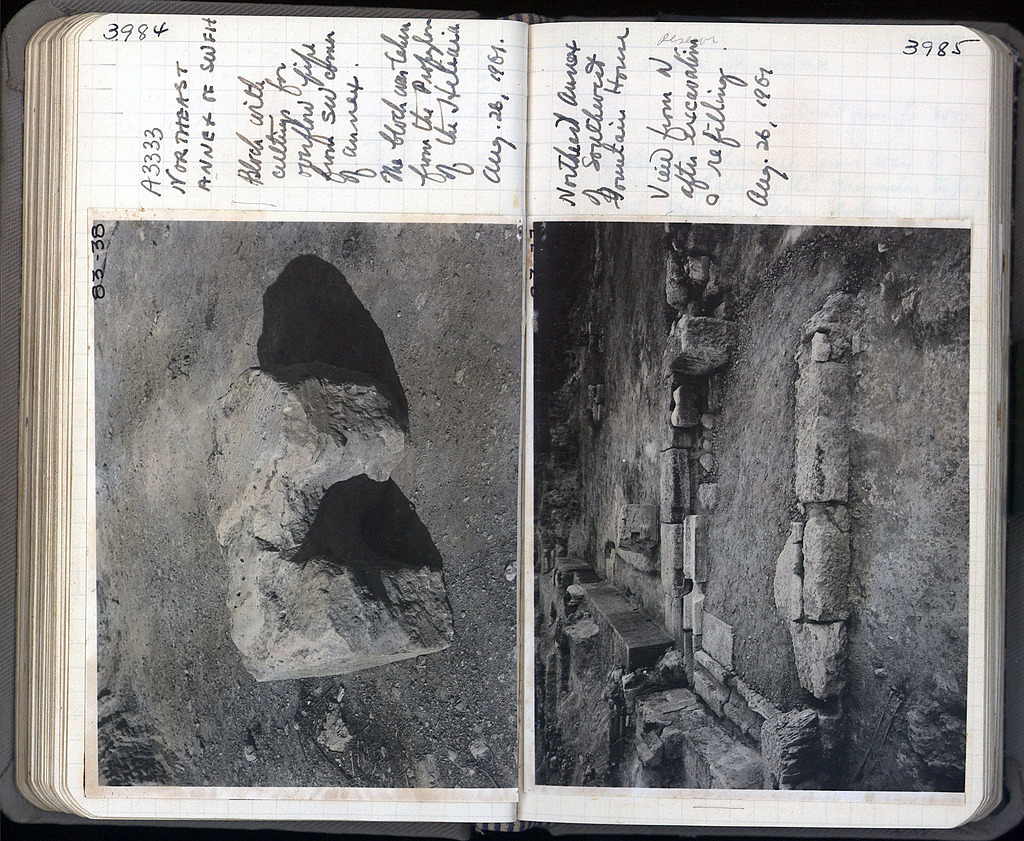 3984
A3333
NORTHEAST
ANNEX OF SWFH
Block with
cutting for
overflow pipe
from SW corner
of annex.
The block was taken
from the Propylon
of the Heliaia
Aug. 26, 1961.
83-38
3985
Northeast Annex
of Southwest
Fountain House
View from N
after excavation
&amp; refilling
Aug. 26, 1961